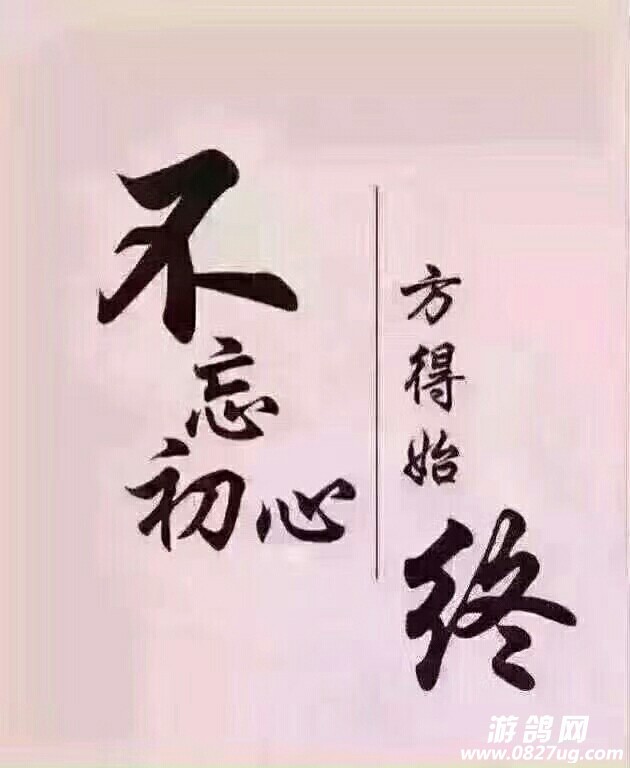 不忘初心
方得始终
游鸽网
www.0827ug.com